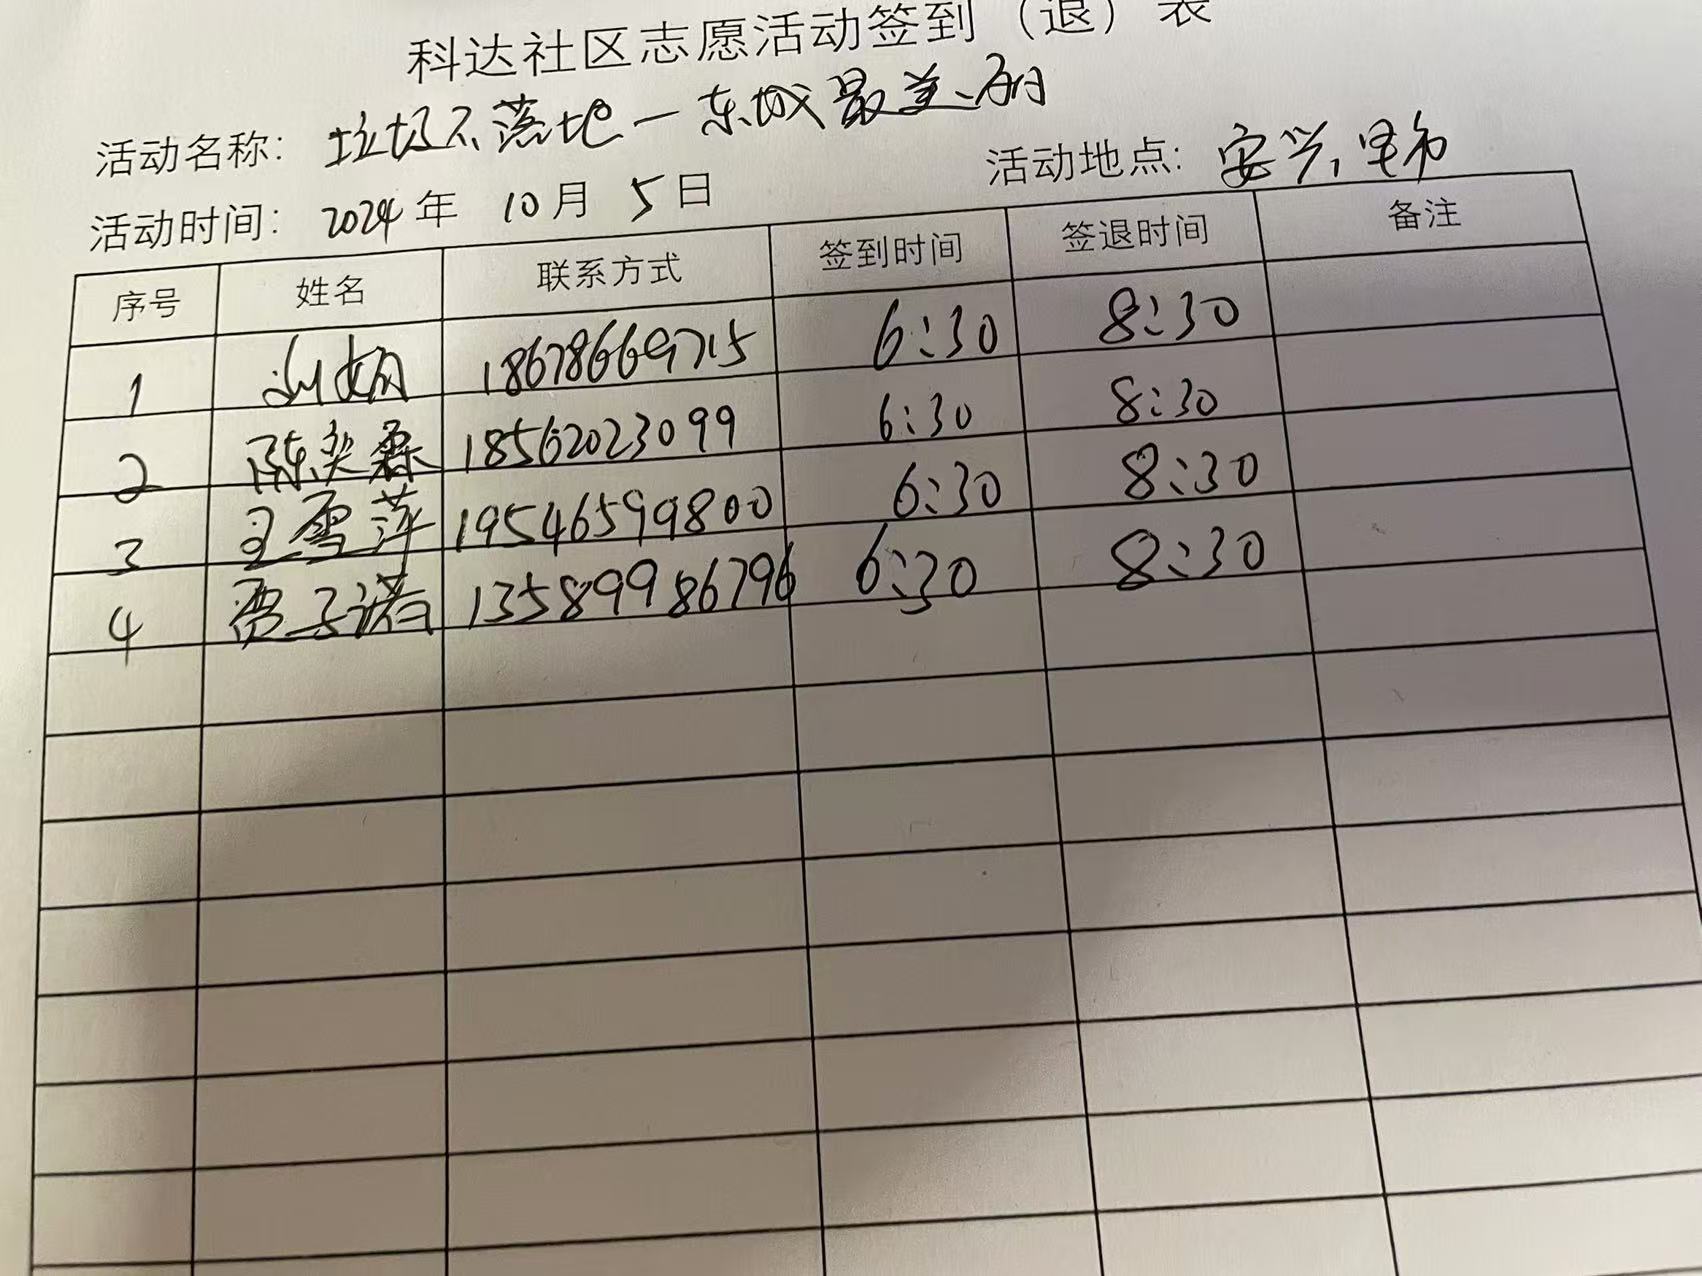 科达社区志愿活动签到（退）表
活动名称： 垃圾不落地一东城最美丽
活动时间： 2024年 10月 5日 活动地点： 安兴
序号 姓名 联系方式 签到时间 签退时间 备注
1 刘娟 18678669715 6:30 8:30
2 陈奕霖 18562023099 6:30 8:30
3 王雪萍 19546599800 6:30 8:30
4 贾子诺 13589986796 6:30 8:30